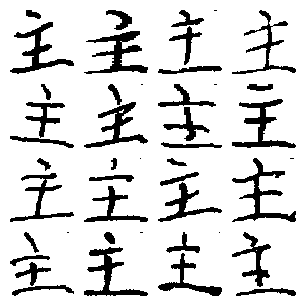 主主主主
主主主主
主主主主
主主主主